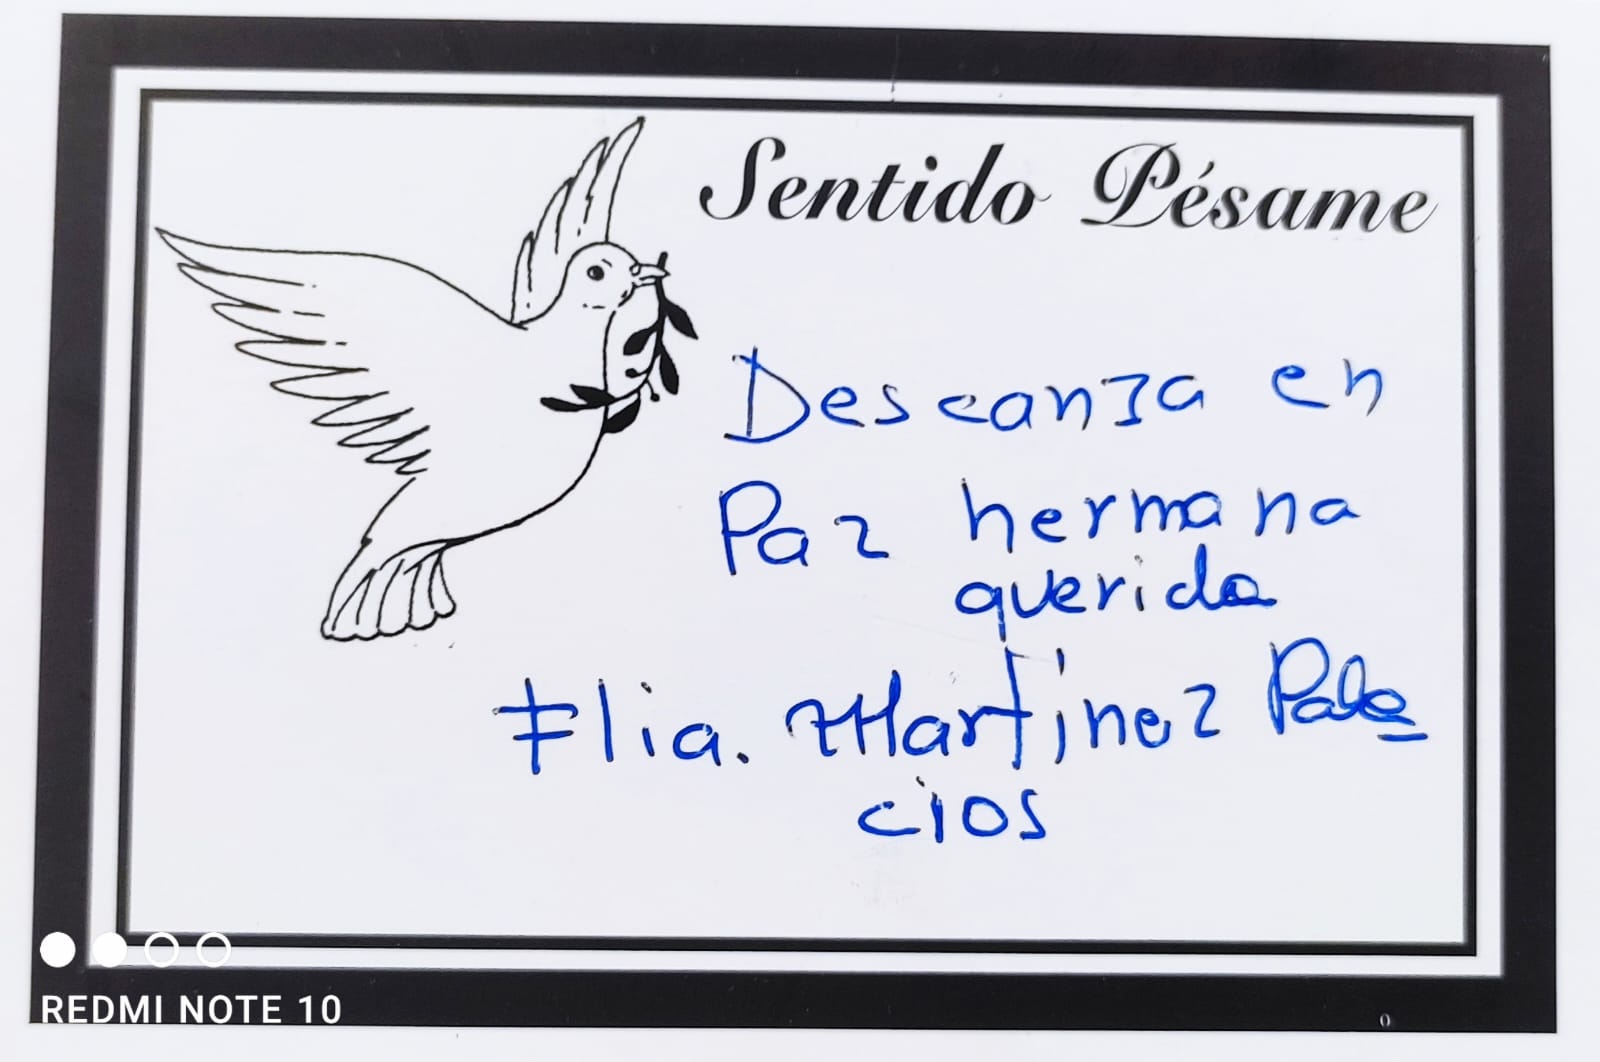 Sentido Pésame
Descanza en
Paz hermana
querida
Flia. Martinez Pala
cios
REDMI NOTE 10